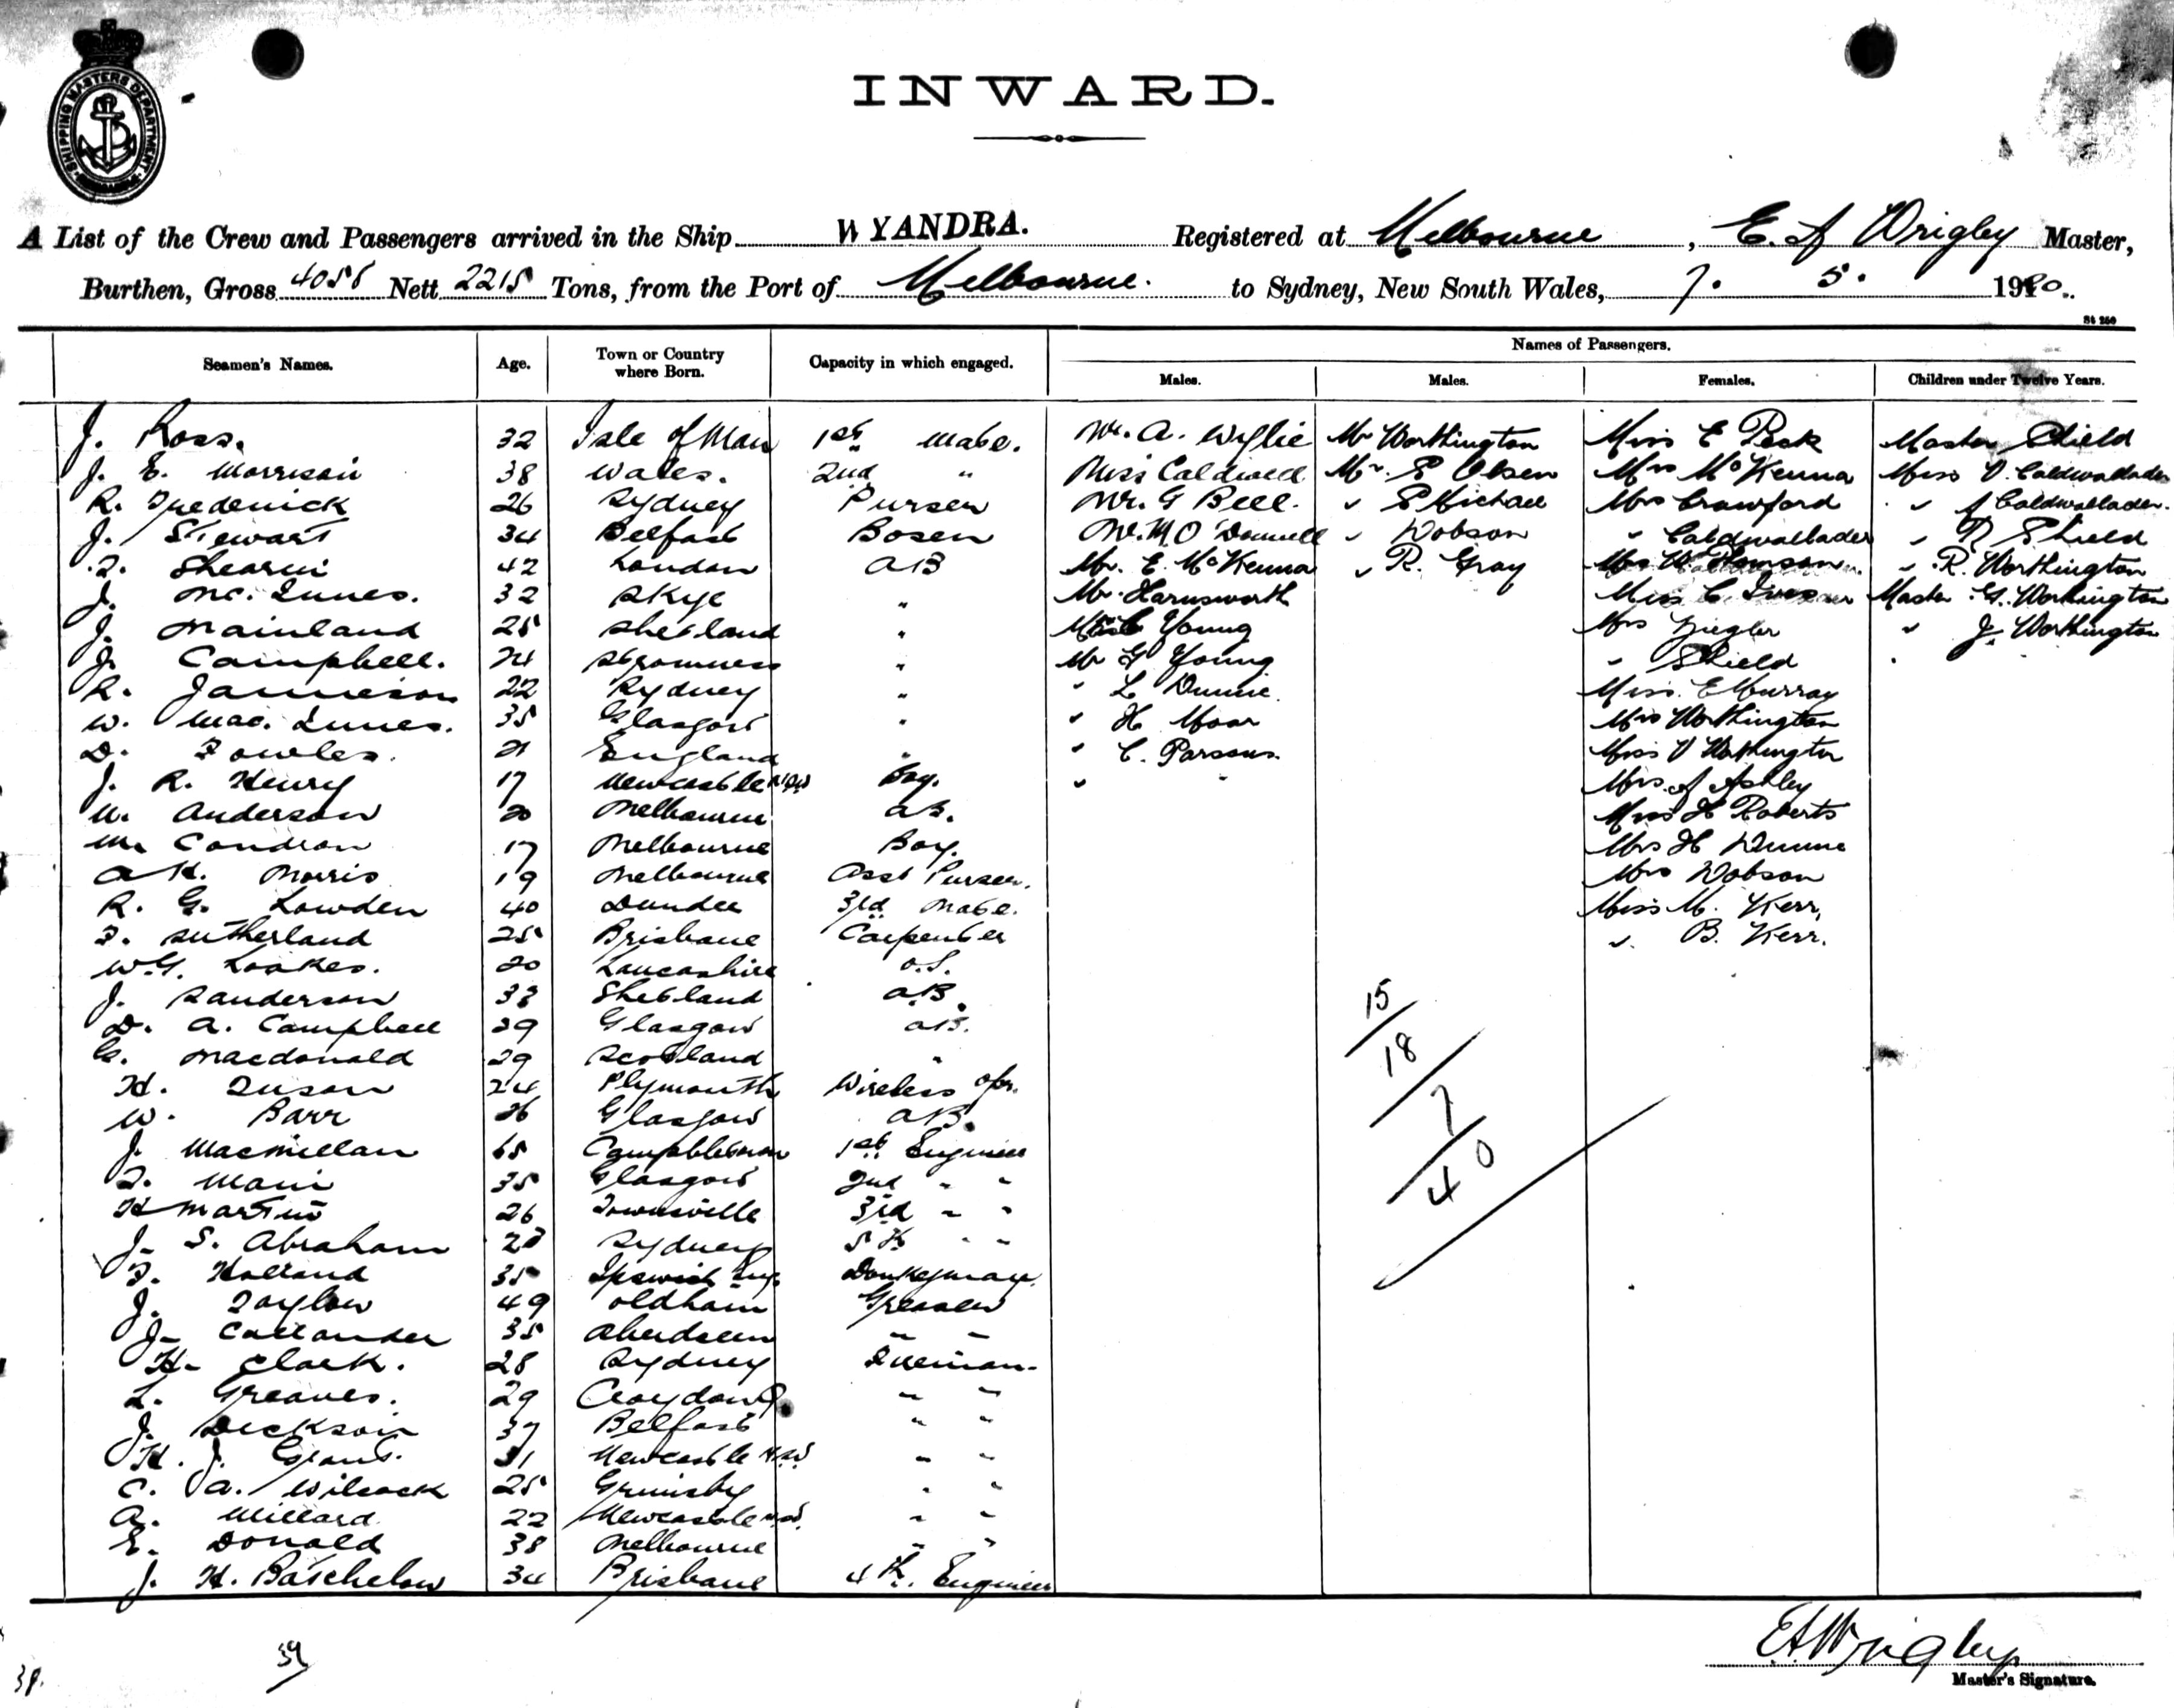 SHIPPING MASTERS DEPARTMENT
INWARD.
A List of the Crew and Passengers arrived in the Ship WYANDRA. Registered at Melbourne, E. A Wrigley Master,
Burthen, Gross 4058 Nett 2215 Tons, from the Port of Melbourne. to Sydney, New South Wales, 7. 5. 1920.
St 250
Seamen's Names. Age. Town or Country where Born. Capacity in which engaged. Names of Passengers.
Males. Males. Females. Children under Twelve Years.
J. Ross. 32 Isle of Man 1st Mate. Mr. A. Wyllie Mr Worthington Miss E Peck Master Shield
J. E. Morrison 38 Wales. 2nd " Miss Caldwell Mr. P Olsen Mrs McKenna Miss V. Caldwallader
R. Frederick 26 Sydney Purser Mr. G Bell. " P Michael Mrs Crawford " J Caldwallader.
J. Stewart 34 Belfast Bosen Mr. M O'Donnell " Dobson " Caldwallader " Shield
Shearin 42 London AB Mr. E. McKenna " R. Gray Mrs W. " R. Worthington
J. Mc. Innes. 32 Skye " Mr. Harnsworth Miss C Ives Master G. Worthington
J. Mainland 25 Shetland " Young Mrs Ziegler " J. Worthington
J. Campbell. 24 Stromness " Mr G Young " Shield
R. Jamieson 22 Sydney " " L Dunne. Miss. E Murray
W. Mac. Innes. 35 Glasgow " " H Moar Mrs Worthington
D. Fowles. 21 England " " C. Parsons. Miss V Worthington
J. R. Henry 17 Newcastle NSW Boy. " Mrs. A Ashley
W. Anderson 20 Melbourne AB. Miss H Roberts
Condron 17 Melbourne Boy. Mrs H Dunne
A H. Morris 19 Melbourne Asst Purser. Mrs Dobson
R. G. Lowden 40 Dundee 3rd Mate. Miss M. Kerr,
F. Sutherland 25 Brisbane Carpenter " B. Kerr.
W. G. Loakes. 20 Lancashire O.S.
J. Sanderson 33 Shetland AB.
D. A. Campbell 29 Glasgow AB.
Macdonald 29 Scotland "
H. Tuson 24 Plymouth Wireless Opr.
W. Barr 26 Glasgow AB.
J. Macmillan 65 1st Engineer
Main 35 Glasgow 2nd " "
H Martin 26 Townsville 3rd " "
J. S. Abraham Sydney 5th " "
Holland 35 Ipswich Eng. Donkeyman.
J. Taylor 49 Oldham Greaser
J. Callander 35 Aberdeen " "
H. Clark. 28 Sydney Fireman.
L. Greaves. 29 Croydon " "
J. Dickson 37 Belfast " "
H. J. Grant. 31 Newcastle NSW " "
C. A. Wilcock 25 Grimsby " "
A. Millard. 22 Newcastle NSW. " "
E. Donald 38 Melbourne " "
J. H. Batchelor 34 Brisbane 4th. Engineer
15
18
7
40
39
38.
E A Wrigley
Master's Signature.